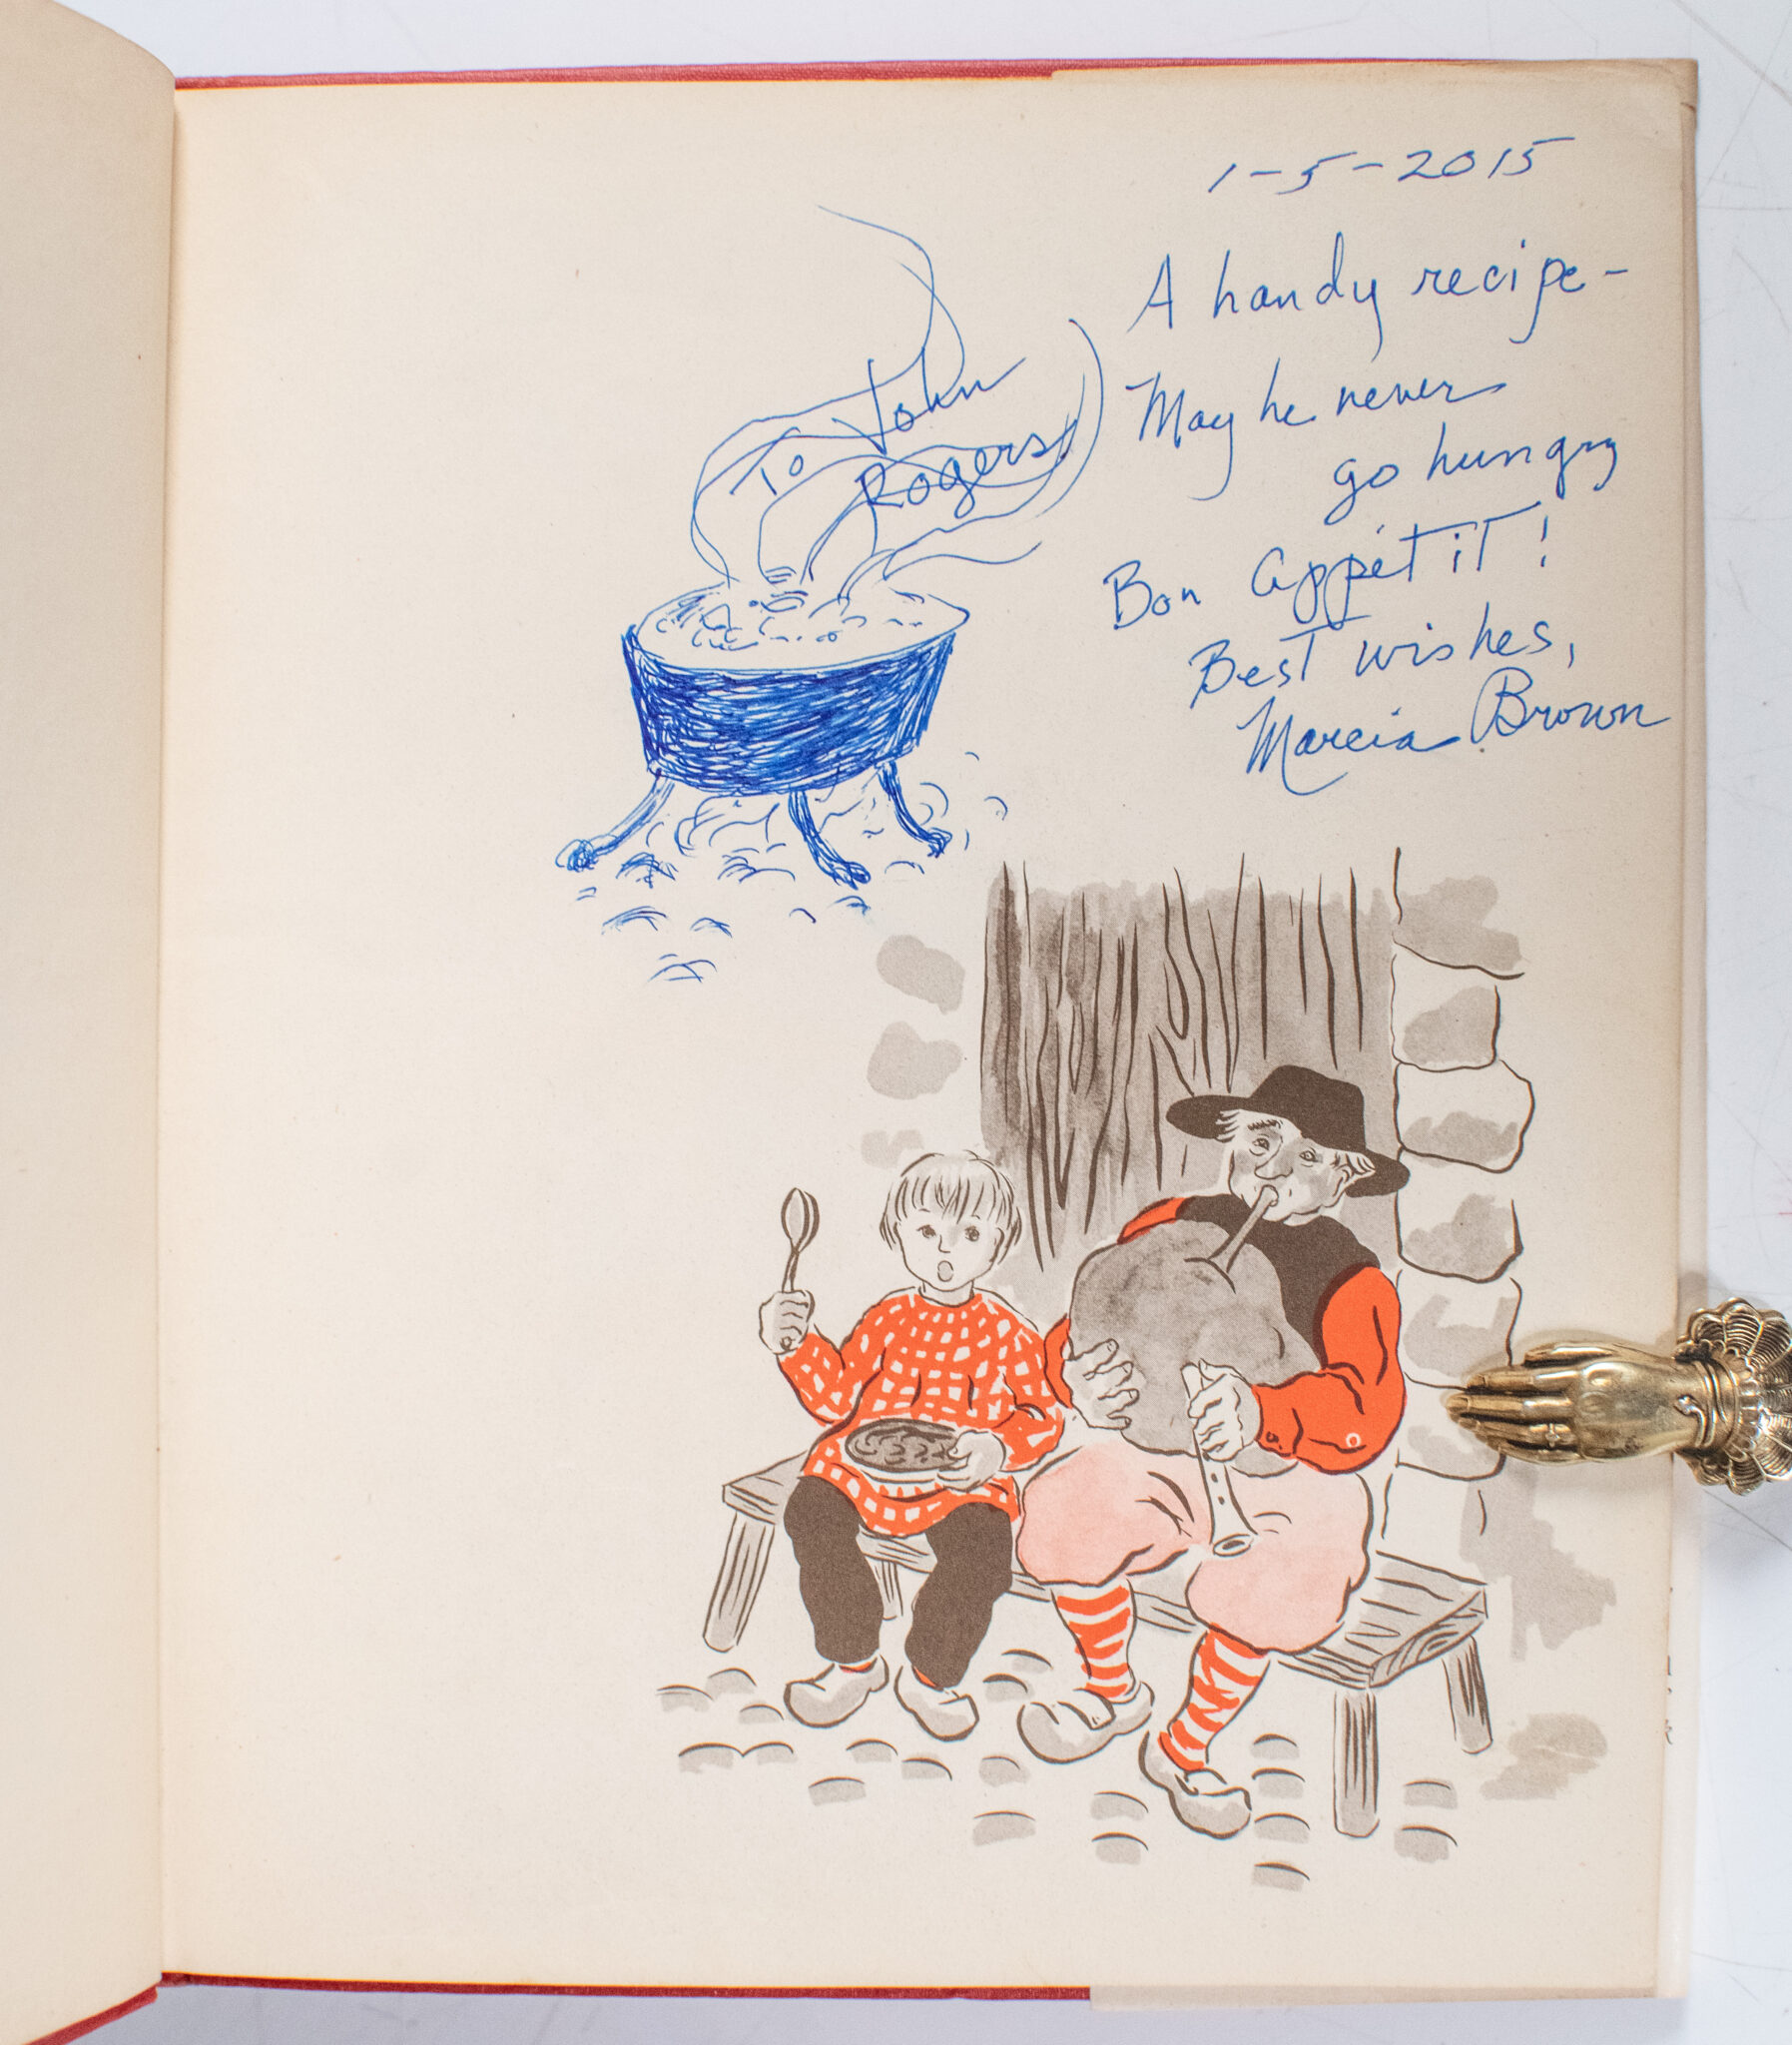 1-5-2015
A handy recipe-
May he never
go hungry
Bon appétit!
Best wishes,
Marcia Brown
To John
Rogers